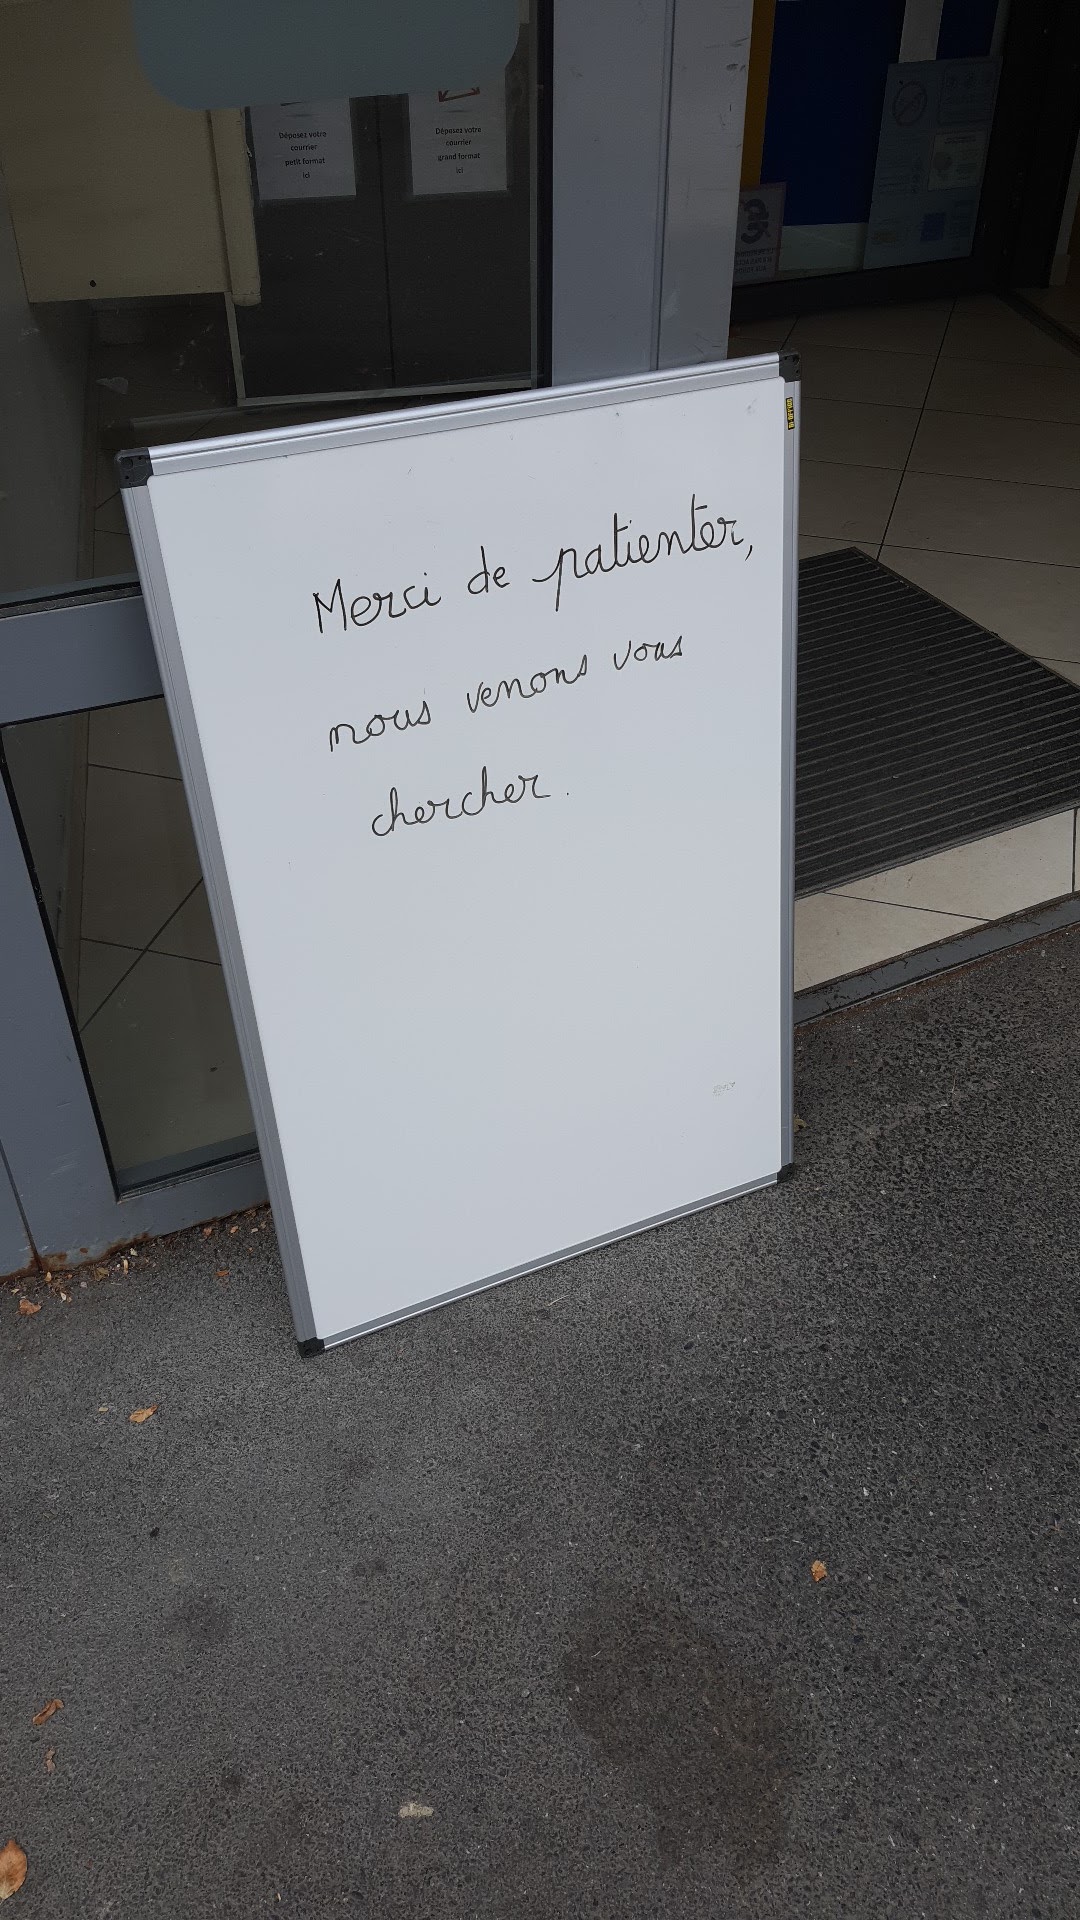 Déposez votre
courrier
petit format
ici
Déposez votre
courrier
grand format
ici
Merci de patienter,
nous venons vous
chercher.